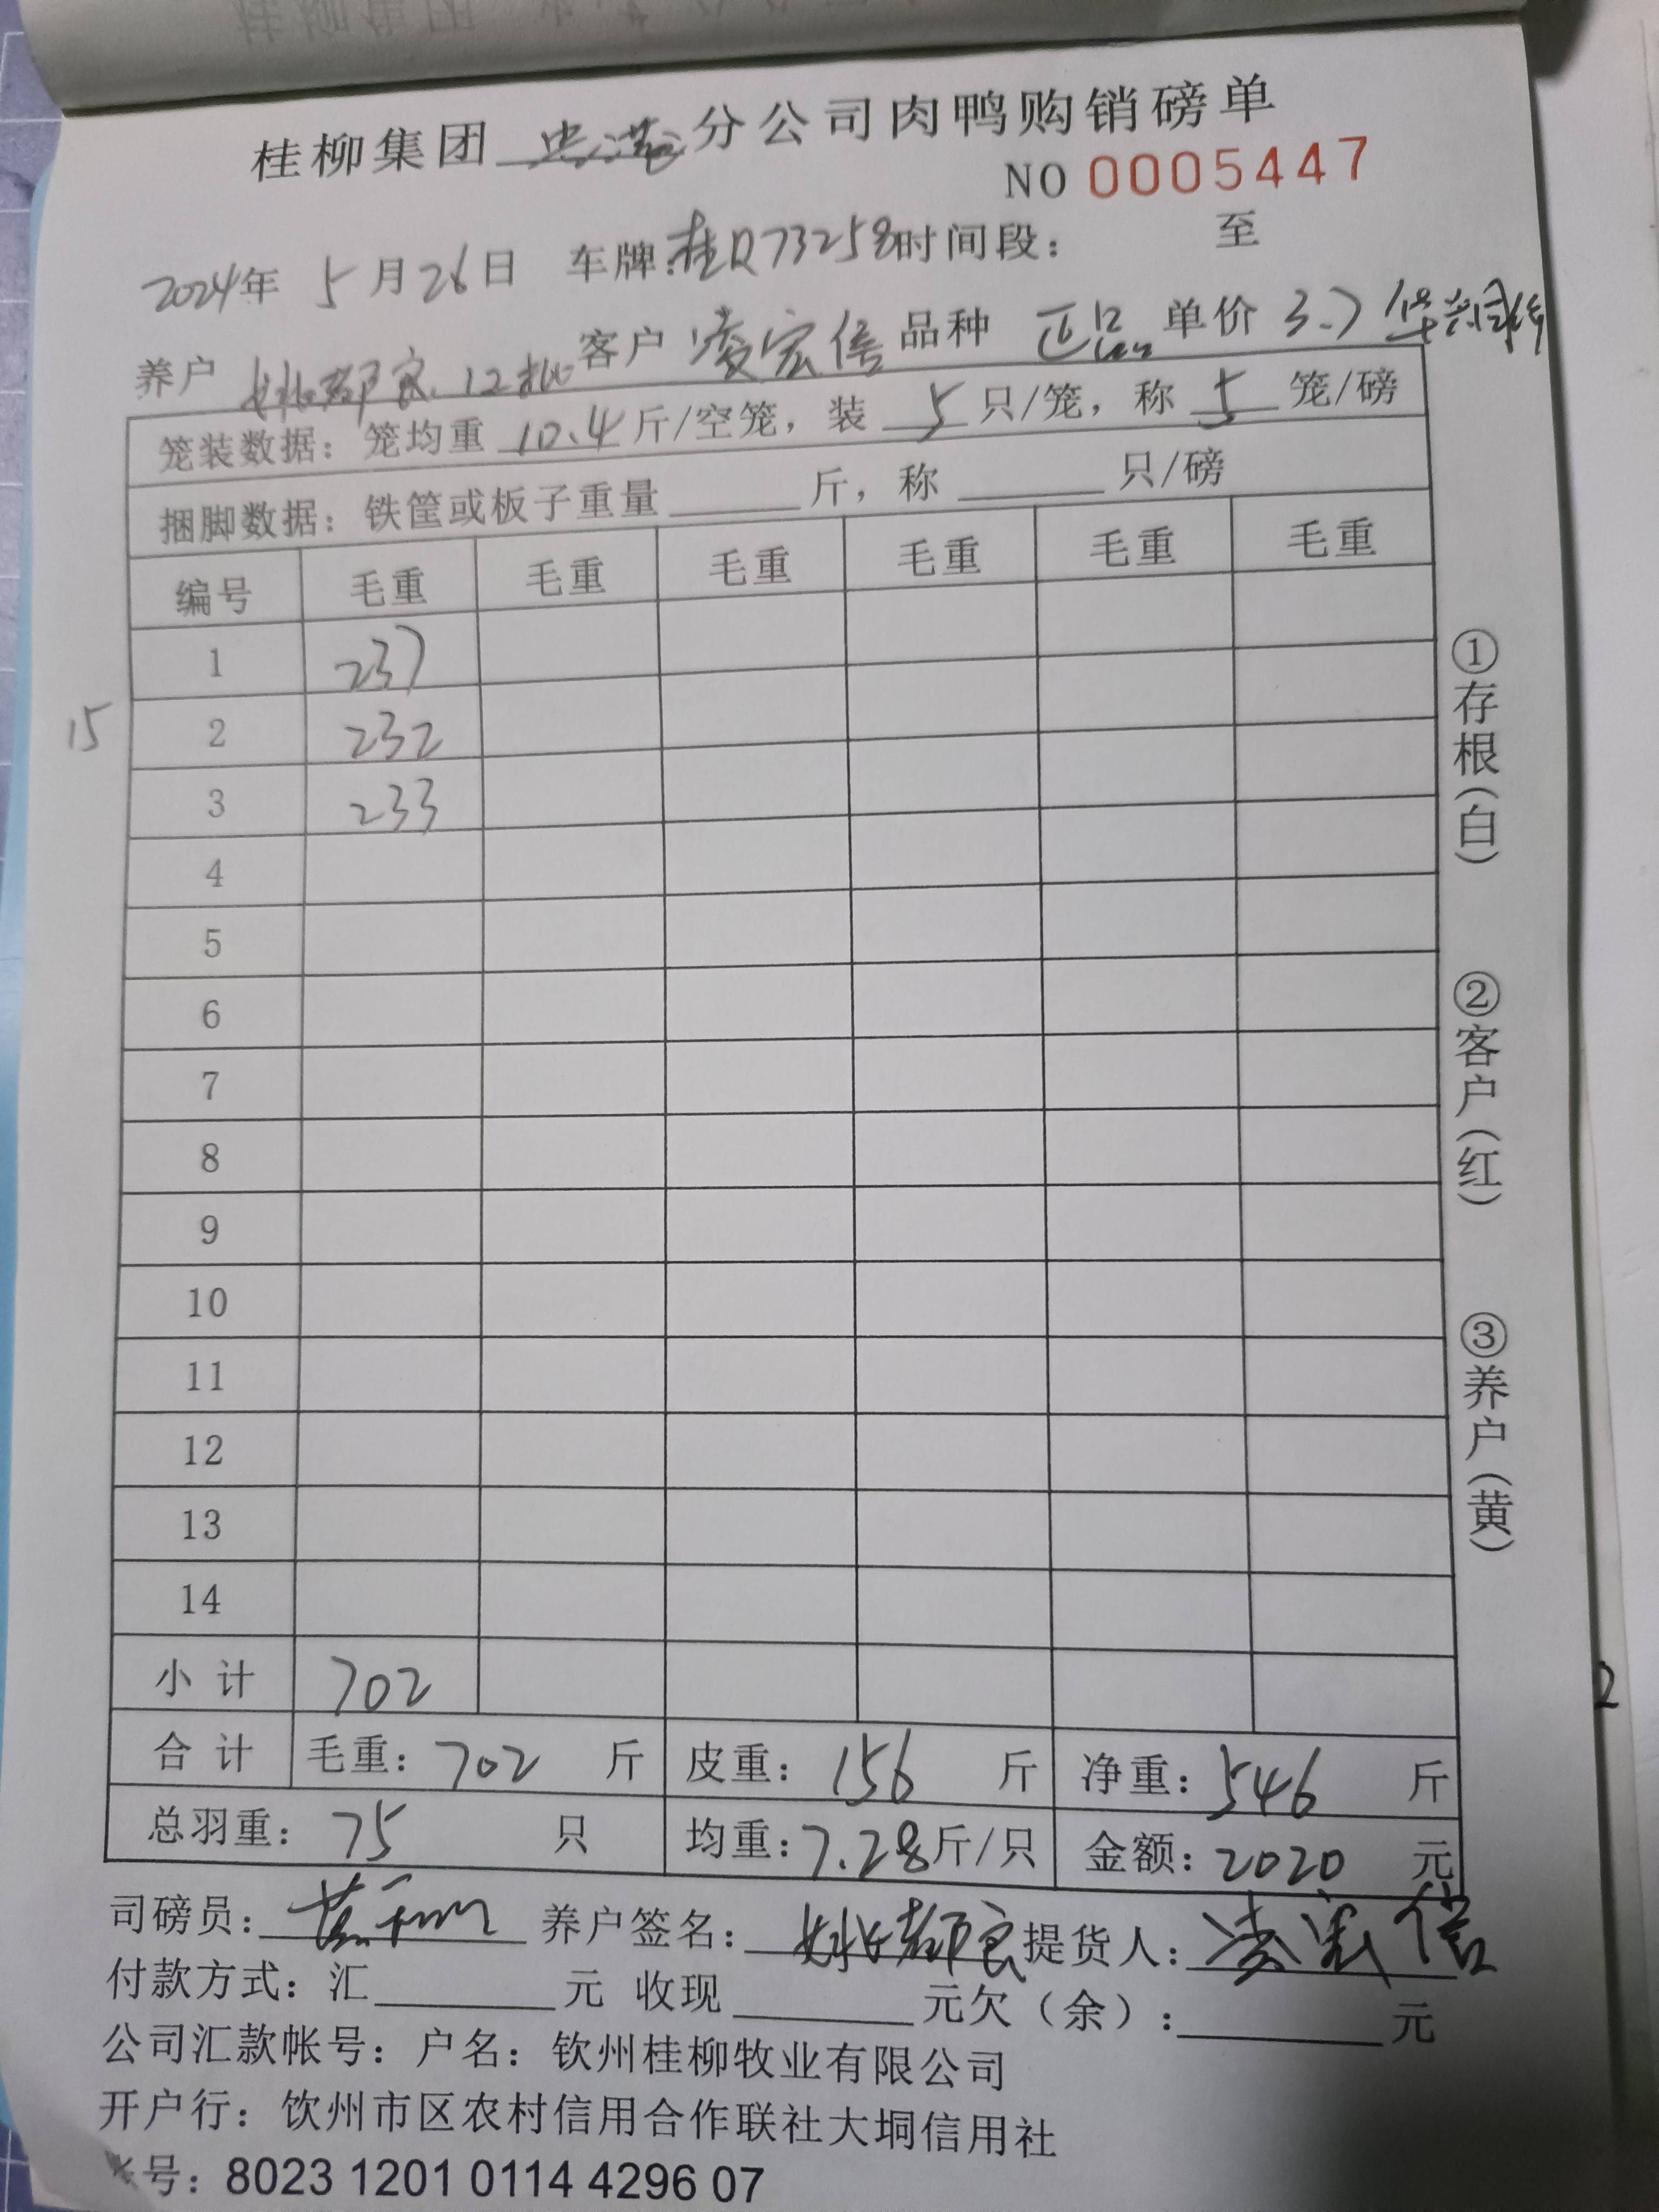 桂柳集团 分公司肉鸭购销磅单
NO 0005447
2024年 5月26日 车牌:桂Q73258时间段: 至
养户 姚都良 12批 客户 凌宏信 品种 正品 单价 3.7
笼装数据: 笼均重 10.4 斤/空笼, 装 5 只/笼, 称 5 笼/磅
捆脚数据: 铁筐或板子重量 斤, 称 只/磅
编号 毛重 毛重 毛重 毛重 毛重 毛重
1 237
15
2 232
3 233
4
5
6
7
8
9
10
11
12
13
14
小计 702
合计 毛重: 702 斤 皮重: 156 斤 净重: 546 斤
总羽重: 75 只 均重: 7.28斤/只 金额: 2020 元
司磅员: 养户签名: 姚都良 提货人: 凌宏信
付款方式: 汇 元 收现 元欠(余): 元
公司汇款帐号: 户名: 钦州桂柳牧业有限公司
开户行: 饮州市区农村信用合作联社大垌信用社
号: 8023 1201 0114 4296 07
①存根(白)
②客户(红)
③养户(黄)
2